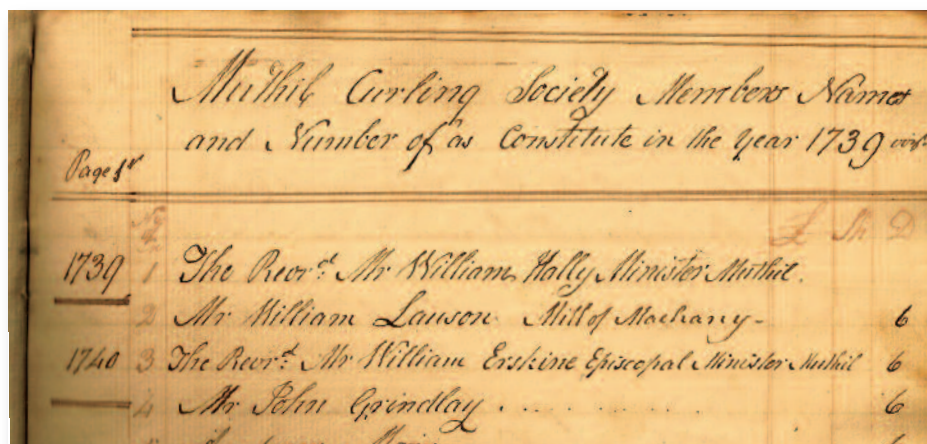 Muthil Curling Society Members Names
and Number of as Constitute in the Year 1739 vizt
Page 1st
No
L Sh D
1739 1 The Revrd Mr William Hally Minister Muthil.
2 Mr William Lauson Mill of Machany - 6
1740 3 The Revrd Mr William Erskine Episcopal Minister Muthil 6
4 Mr John Grindlay . . . . . . . . 6